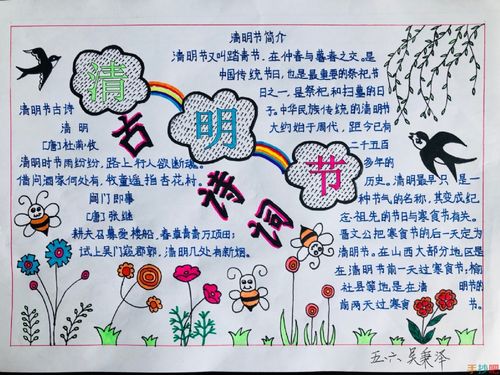 清明节
古诗词
清明节古诗
清明
[唐]杜 牧
清明时节雨纷纷，路上行人欲断魂。
借问酒家何处有，牧童遥指杏花村。
门即事
[唐]张继
耕夫召募 楼船，春草青青万顷田；
试上吴门窥郡郭，清明几处有新烟。
清明节简介
清明节又叫踏青节，在仲春与暮春之交。是
中国传统节日，也是最重要的祭祀节
日之一，是祭祀和扫墓的日
子。中华民族传统的清明节
大约始于周代，距今已有
二千五百
多年的
历史。清明最早只是一
种节气的名称，其变成纪
念祖先的节日与寒食节有关。
晋文公把寒食节的后一天定为
清明节。在山西大部分地区是
在清明节前一天过寒食节，榆
社县等地是在清明节的
前两天过寒食节。
五.六 吴秉泽
手抄吧